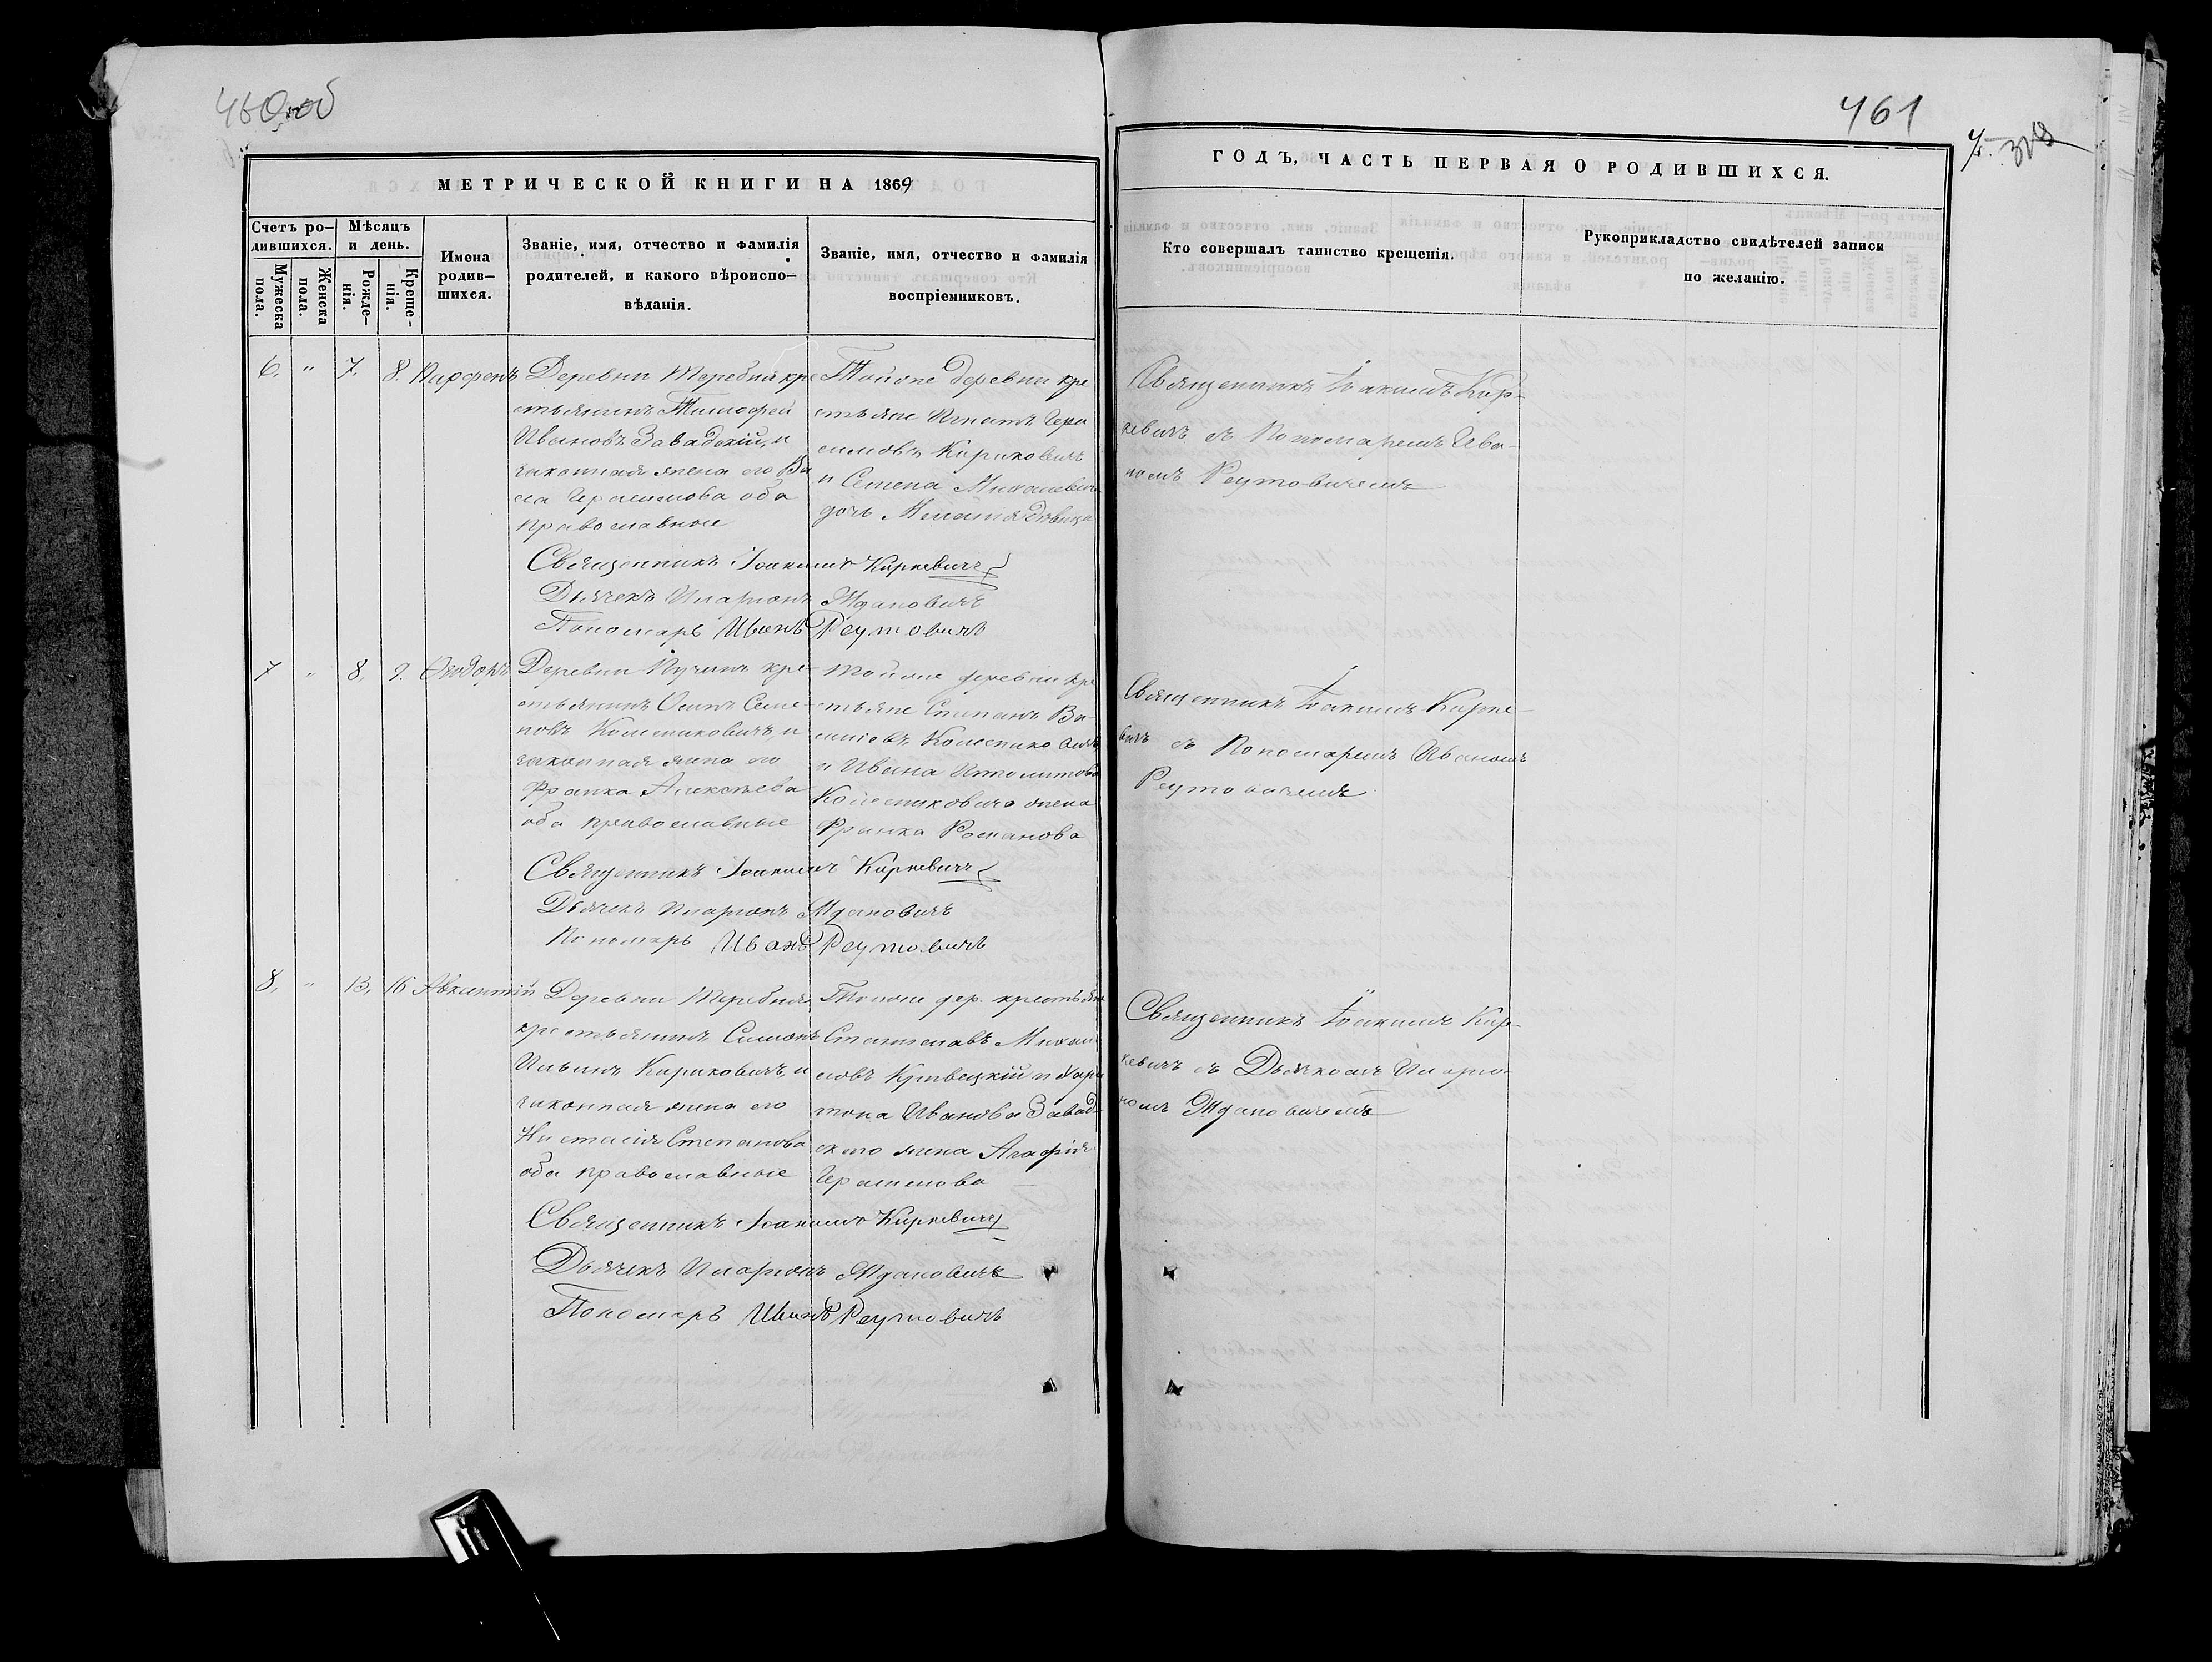 460 об
461
МЕТРИЧЕСКОЙ КНИГИ НА 1869
ГОДЪ, ЧАСТЬ ПЕРВАЯ О РОДИВШИХСЯ.
Счетъ ро-
дившихся.
Мужеска
пола.
Женска
пола.
Мѣсяцъ
и день.
Рожде-
нія.
Креще-
нія.
Имена
родив-
шихся.
Званіе, имя, отчество и фамилія
родителей, и какого вѣроиспо-
вѣданія.
Званіе, имя, отчество и фамилія
воспріемниковъ.
Кто совершалъ таинство крещенія.
Рукоприкладство свидѣтелей записи
по желанію.
6. " 7. 8.
Деревни Теребня кре
стьянинъ Тимофей
Ивановъ Завадскій, и
законная жена его Ва
са Герасимова оба
православные
Тойоже деревни кре
стьяне Игнатъ Гера
симовъ Кириковичъ
и Семена
дочь дѣвица
Священникъ Іоакимъ Кир-
кевичъ съ Пономаремъ Ива-
номъ Реутовичемъ
Священникъ Іоакимъ Киркевичъ
Дьячекъ Иларіонъ Ждановичъ
Пономарь Иванъ Реутовичъ
7 " 8, 9. Ѳеодоръ
Деревни Пучинъ кре-
стьянинъ Осипъ Семе-
новъ Колесниковичъ, и
законная жена его
Франка Алексѣева
оба православные
Тойоже деревни кре
стьяне Степанъ Ва-
силіевъ Колеснико вичъ
и Ивана Ипполитова
Колесниковича жена
Франка Романова
Священникъ Іоакимъ Кирке-
вичъ съ Пономаремъ Иваномъ
Реутовичемъ
Священникъ Іоакимъ Киркевичъ
Дьячекъ Иларіонъ Ждановичъ
Пономарь Иванъ Реутовичъ
8, " 13, 16 Авксентій
Деревни Теребня
крестьянинъ Симонъ
Ильинъ Кириковичъ, и
законная жена его
Анастасія Степанова
оба православные
Тойоже дер. крестьяне
Станиславъ Михаи
ловъ Кривецкій и Хари
тона Иванова Завад-
скаго жена Агафія
Герасимова
Священникъ Іоакимъ Кир-
кевичъ съ Дьячкомъ Иларіо-
номъ Ждановичемъ
Священникъ Іоакимъ Киркевичъ
Дьячекъ Иларіонъ Ждановичъ
Пономарь Иванъ Реутовичъ